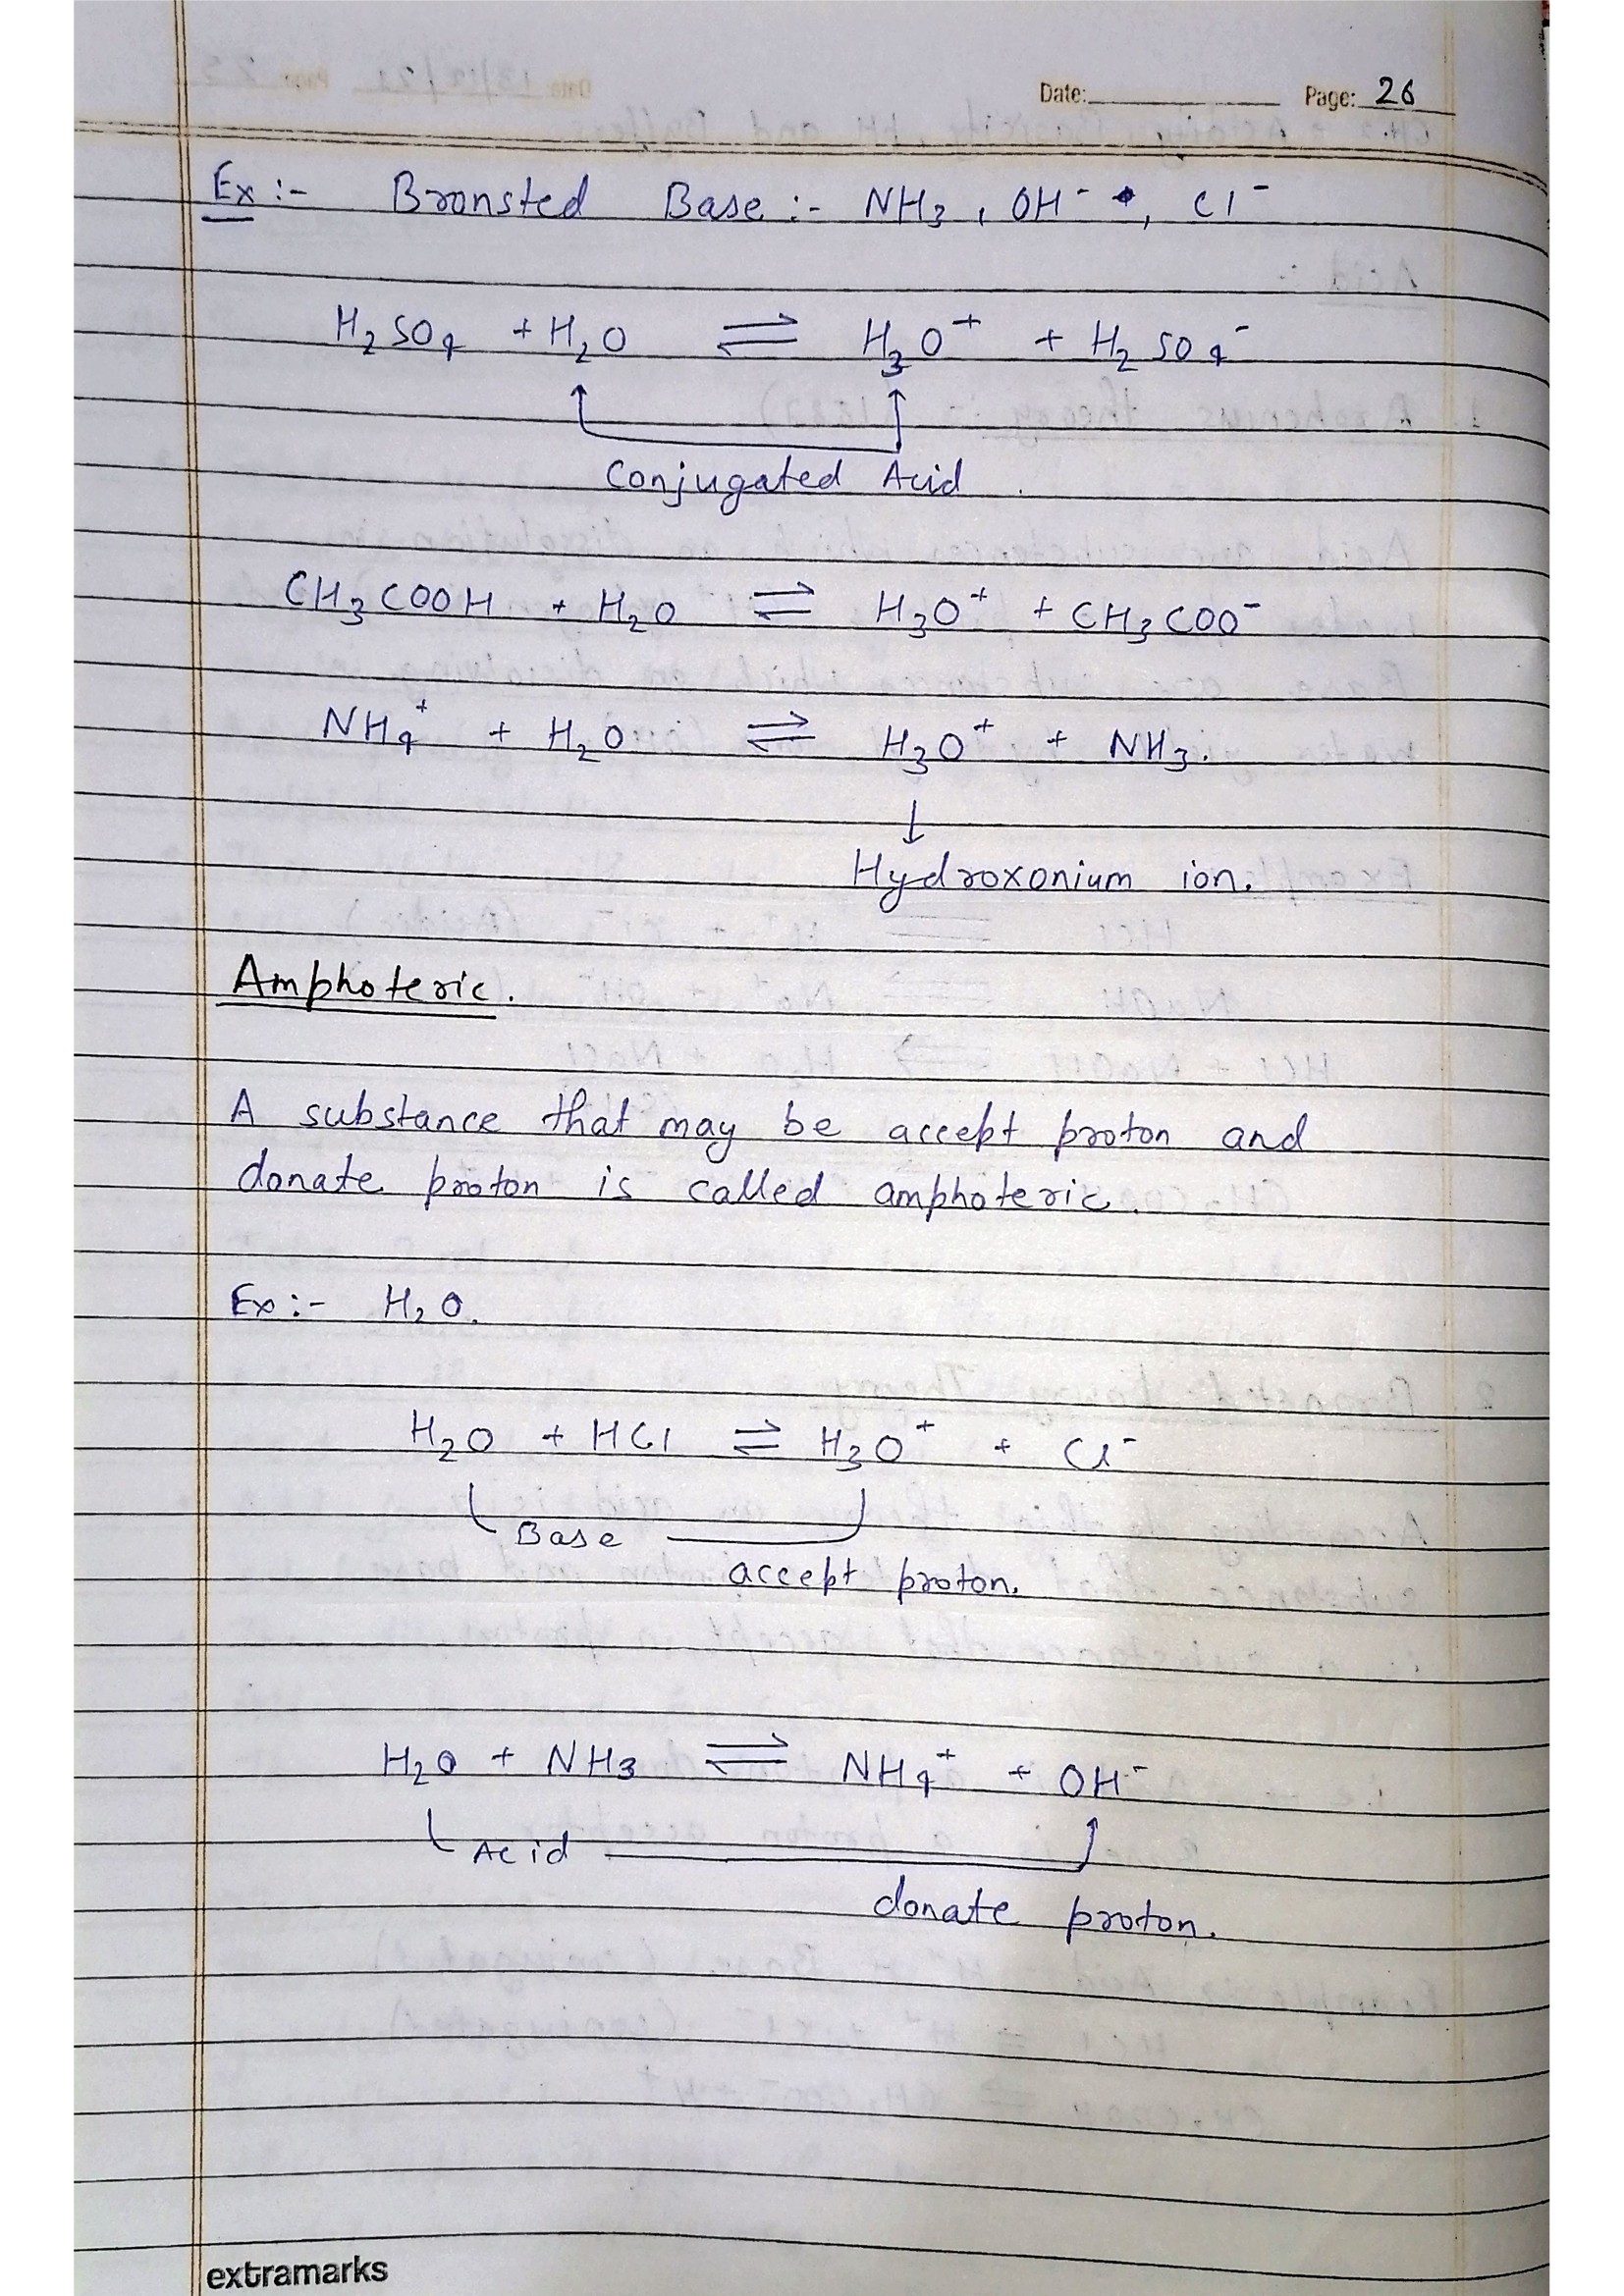 Date: Page: 26
Ex :- Bronsted Base :- NH₃, OH⁻, Cl⁻
H₂SO₄ + H₂O ⇌ H₃O⁺ + H₂SO₄⁻
Conjugated Acid
CH₃COOH + H₂O ⇌ H₃O⁺ + CH₃COO⁻
NH₄⁺ + H₂O ⇌ H₃O⁺ + NH₃.
↓
Hydroxonium ion.
Amphoteric.
A substance that may be accept proton and
donate proton is called amphoteric.
Ex :- H₂O.
H₂O + HCl ⇌ H₃O⁺ + Cl⁻
Base
accept proton.
H₂O + NH₃ ⇌ NH₄⁺ + OH⁻
Acid
donate proton.
extramarks